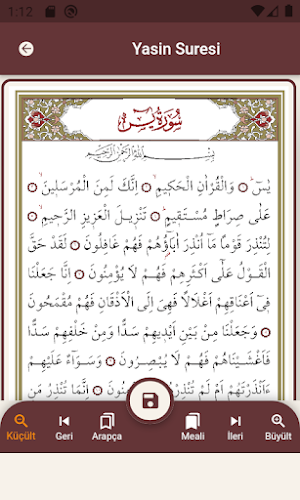 1:12
Yasin Suresi
سُورَةُ يٰسٓ
بِسْمِ اللّٰهِ الرَّحْمٰنِ الرَّحِيمِ
يٰسٓ ۞ وَالْقُرْاٰنِ الْحَكِيمِ ۞ اِنَّكَ لَمِنَ الْمُرْسَلِينَ ۞
عَلٰى صِرَاطٍ مُسْتَقِيمٍ ۞ تَنْزِيلَ الْعَزِيزِ الرَّحِيمِ ۞
لِتُنْذِرَ قَوْمًا مَٓا اُنْذِرَ اٰبَٓاؤُ۬هُمْ فَهُمْ غَافِلُونَ ۞ لَقَدْ حَقَّ
الْقَوْلُ عَلٰٓى اَكْثَرِهِمْ فَهُمْ لَا يُؤْمِنُونَ ۞ اِنَّا جَعَلْنَا
فٓى اَعْنَاقِهِمْ اَغْلَالًا فَهِىَ اِلَى الْاَذْقَانِ فَهُمْ مُقْمَحُونَ
۞ وَجَعَلْنَا مِنْ بَيْنِ اَيْدِيهِمْ سَدًّا وَمِنْ خَلْفِهِمْ سَدًّا
فَاَغْشَيْنَاهُمْ فَهُمْ لَا يُبْصِرُونَ ۞ وَسَوَٓاءٌ عَلَيْهِمْ
ءَاَنْذَرْتَهُمْ اَمْ لَمْ تُنْذِرْ ۞ اِنَّمَا تُنْذِرُ مَنِ
Küçült Geri Arapça Meali İleri Büyült